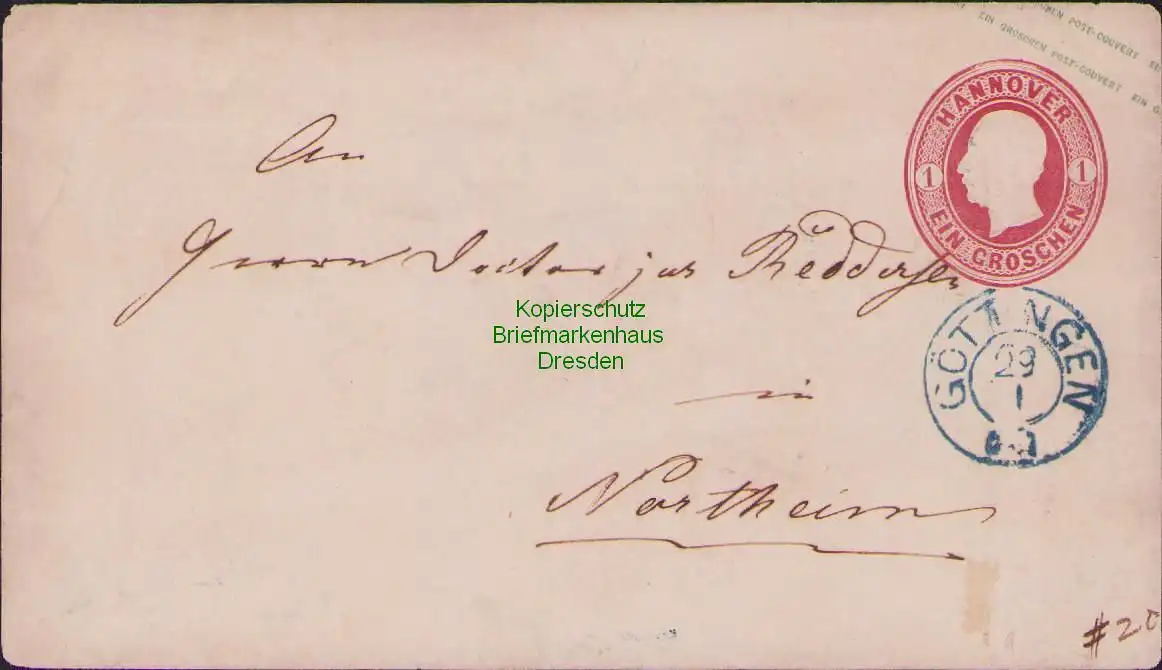 EIN GROSCHEN POST-COUVERT
EIN GROSCHEN POST-COUVERT EIN G
HANNOVER
1 1
EIN GROSCHEN
An
Herrn Doctor jur Reddersen
Kopierschutz
Briefmarkenhaus
Dresden
GÖTTINGEN
29
1
in
Northeim
#20